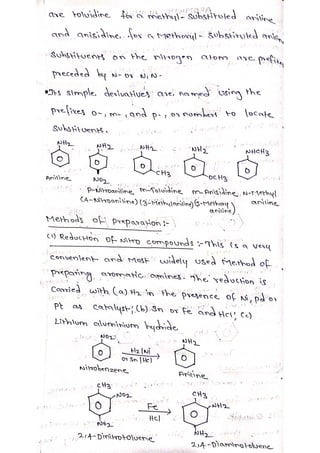 are toluidine for a methyl- substituted aniline
and anisidine for a methoxyl- substituted aniline
substituents on the nitrogen atom are prefix
preceded by N- or N,N-
•Its simple derivatives are named using the
prefixes o-, m-, and p-, or numbers to locate
substituents.
NH2 NH2 NH2 NH2 NHCH3
CH3 OCH3
Aniline NO2
p-Nitroaniline m-Toluidine m-Anisidine N-Methyl
(4-Nitroaniline) (3-Methylaniline) (3-Methoxy aniline
aniline)
Methods of preparation:-
(1) Reduction of Nitro compounds :- This is a very
convenient and Most widely used Method of
preparing aromatic amines. The reduction is
carried with (a) H2 in the presence of Ni, pd or
pt as catalyst; (b) Sn or Fe and HCl; (c)
Lithium aluminium hydride
NO2 NH2
H2/Ni
or Sn/HCl
Nitrobenzene Aniline
CH3 CH3
NO2 Fe NH2
HCl
NO2 NH2
2,4-Dinitrotoluene 2,4-Diaminotoluene